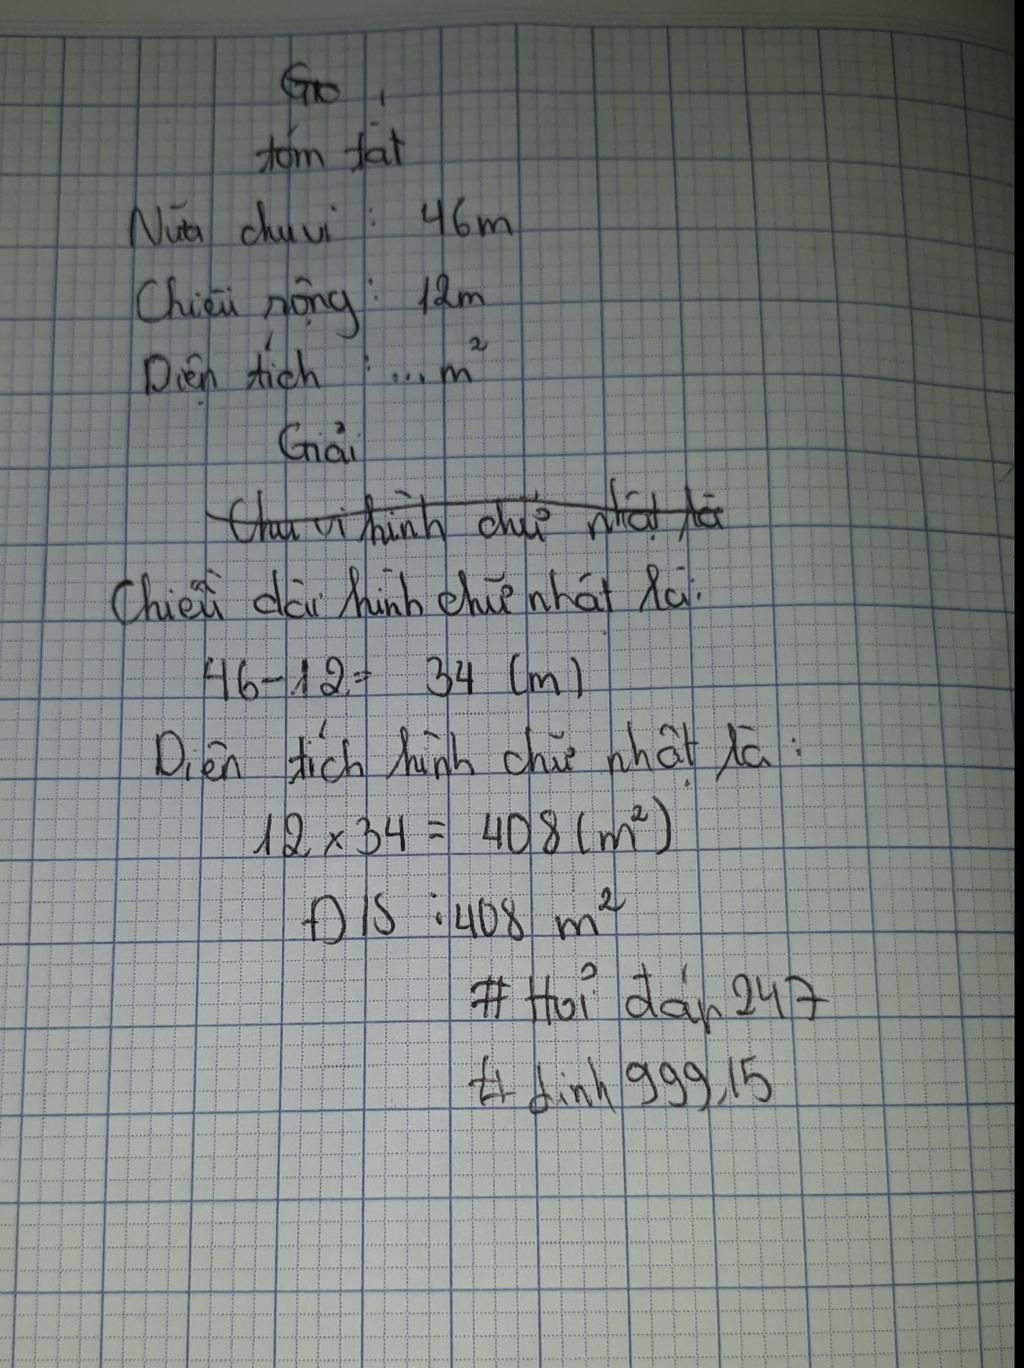 tóm tắt
Nửa chu vi : 46m
Chiều rộng : 12m
Diện tích : ... m²
Giải
Chu vi hình chữ nhật là
Chiều dài hình chữ nhật là:
46-12= 34 (m)
Diện tích hình chữ nhật là :
12 x 34 = 408 (m²)
Đ/S : 408 m²
# Hỏi đáp 247